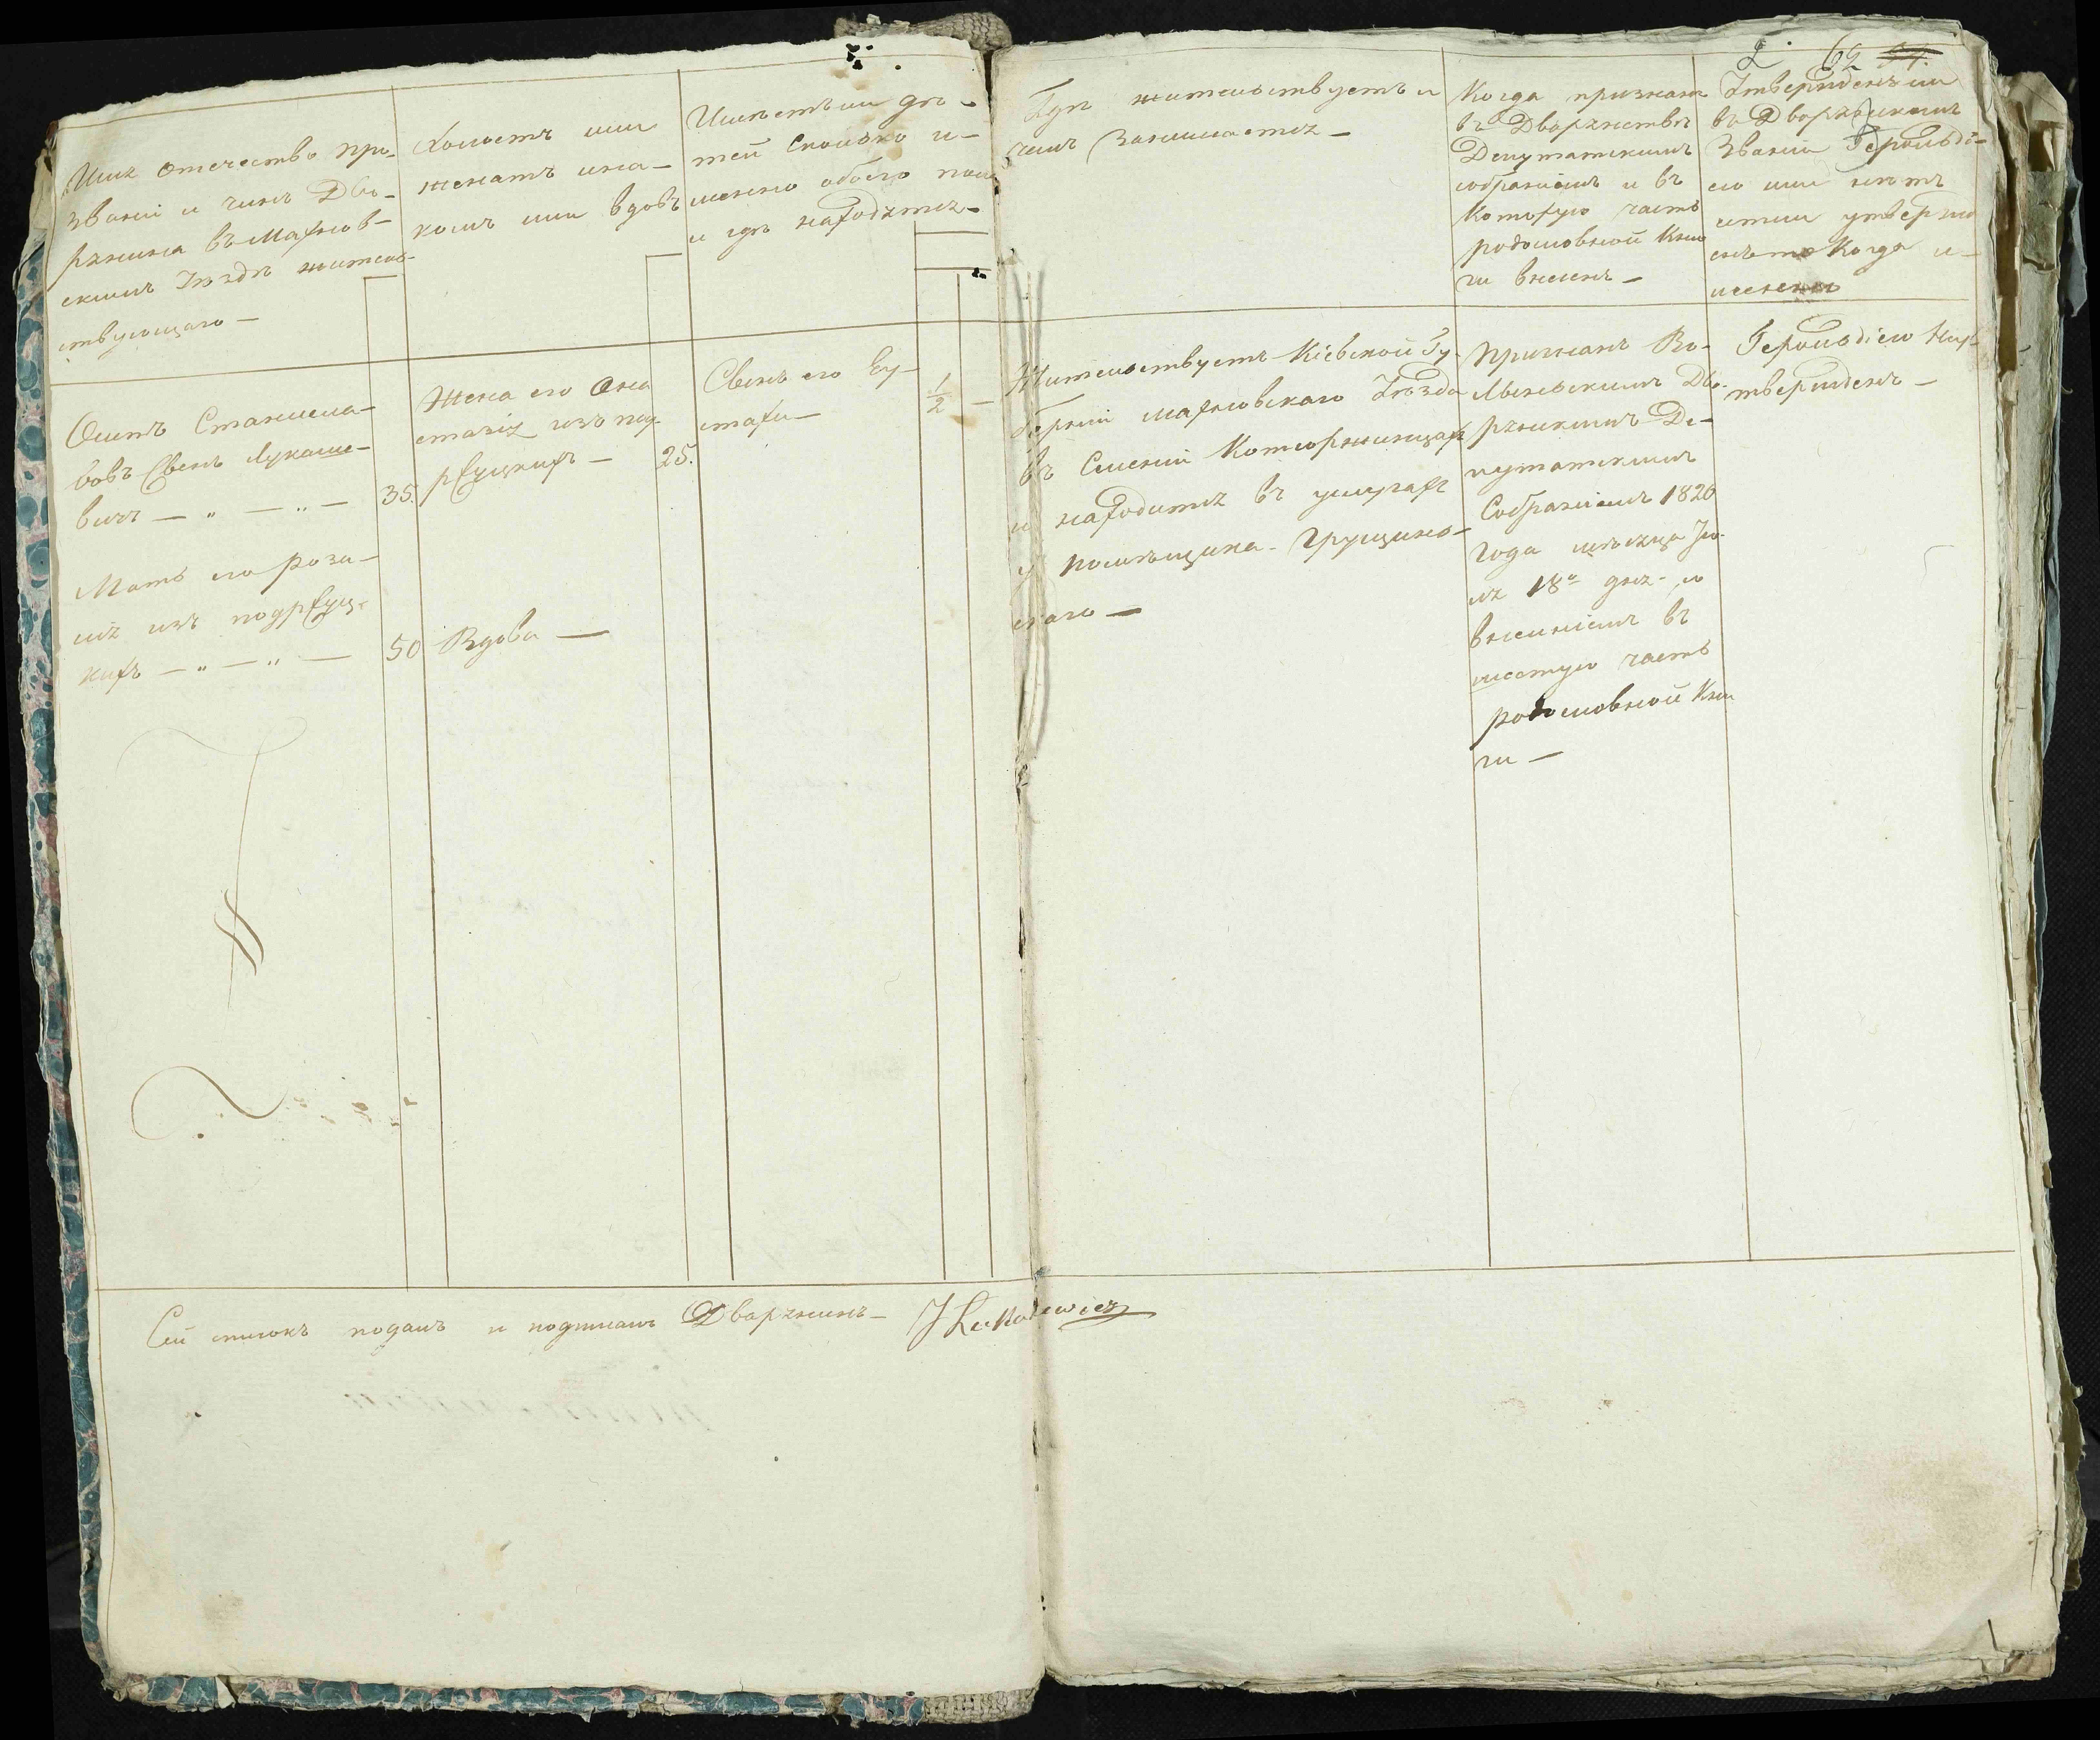 2. 69 94.
Имя отечество про-
звание и чинъ Дво-
рянина въ Махнов-
скимъ Уѣздѣ житель-
ствующаго —
Холостъ или
женатъ и на
комъ или вдовъ
Имѣетъ ли дѣ-
тей сколько и-
менно обоего пола
и гдѣ находятся —
Гдѣ жительствуетъ и
чемъ занимается —
Когда признанъ
въ Дворянствѣ
Депутатскимъ
собраніемъ и въ
которую часть
родословной Кни
ги внесенъ —
Утвержденъ ли
въ Дворянскимъ
Званіи Герольді-
ею или нѣтъ
если утверж
енъ то Когда и-
Осипъ Станисла-
вовъ Сынъ Лукаше-
вичъ — „ — „ — 35.
Жена его Ана
стазія изъ под-
— 25.
Сынъ его Еу-
стахи — 1/2 —
Мать его Роза-
лія изъ
кихъ — „ — „ — 50
Вдова —
Жительствуетъ Кіевской Гу-
берніи Махновскаго Уѣзда
въ Селеніи Котюржинцахъ
и находится въ услугахъ
у помѣщика Грущинс-
каго —
Признанъ Во-
лынскимъ Дво-
рянскимъ Де-
путатскимъ
Собраніемъ 1820
года мѣсяца Ію-
ля 18го дня, со
внесеніемъ въ
шестую часть
родословной Кни
ги —
Герольдіею Неу-
твержденъ —
Сей списокъ подалъ и подписалъ Дварянинъ — J Łukaszewicz